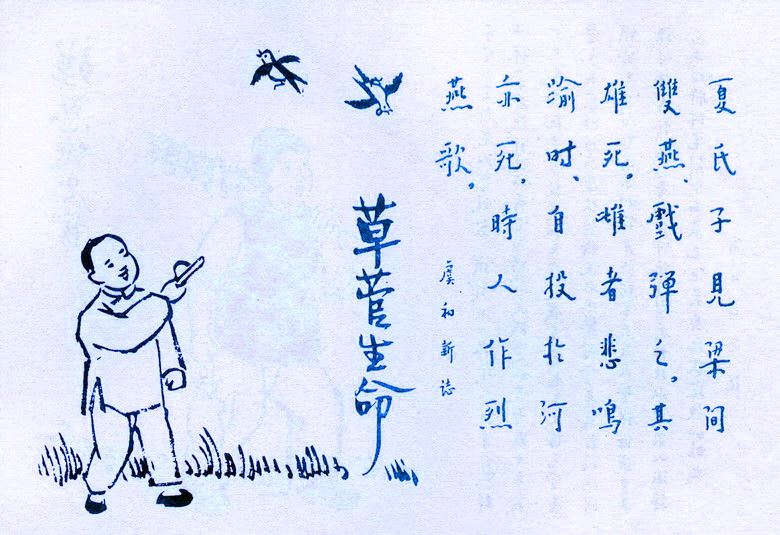 夏氏子見梁間
雙燕、戲彈之。其
雄死。雌者悲鳴
逾时、自投於河
亦死。時人作烈
燕歌。
虞初新誌
草菅生命